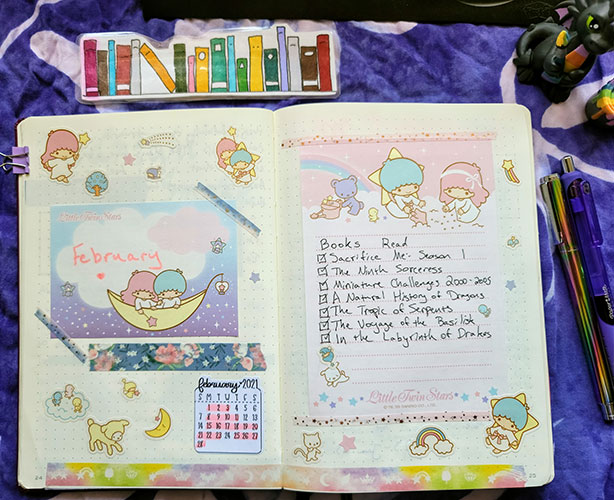 LittleTwinStars
February
february•2021
S M T W T F S
1 2 3 4 5 6
7 8 9 10 11 12 13
14 15 16 17 18 19 20
21 22 23 24 25 26 27
28
24
Books Read
Sacrifice Me: Season 1
The Ninth Sorceress
Miniature Challenges 2000-2005
A Natural History of Dragons
The Tropic of Serpents
The Voyage of the Basilisk
In the Labyrinth of Drakes
LittleTwinStars
25